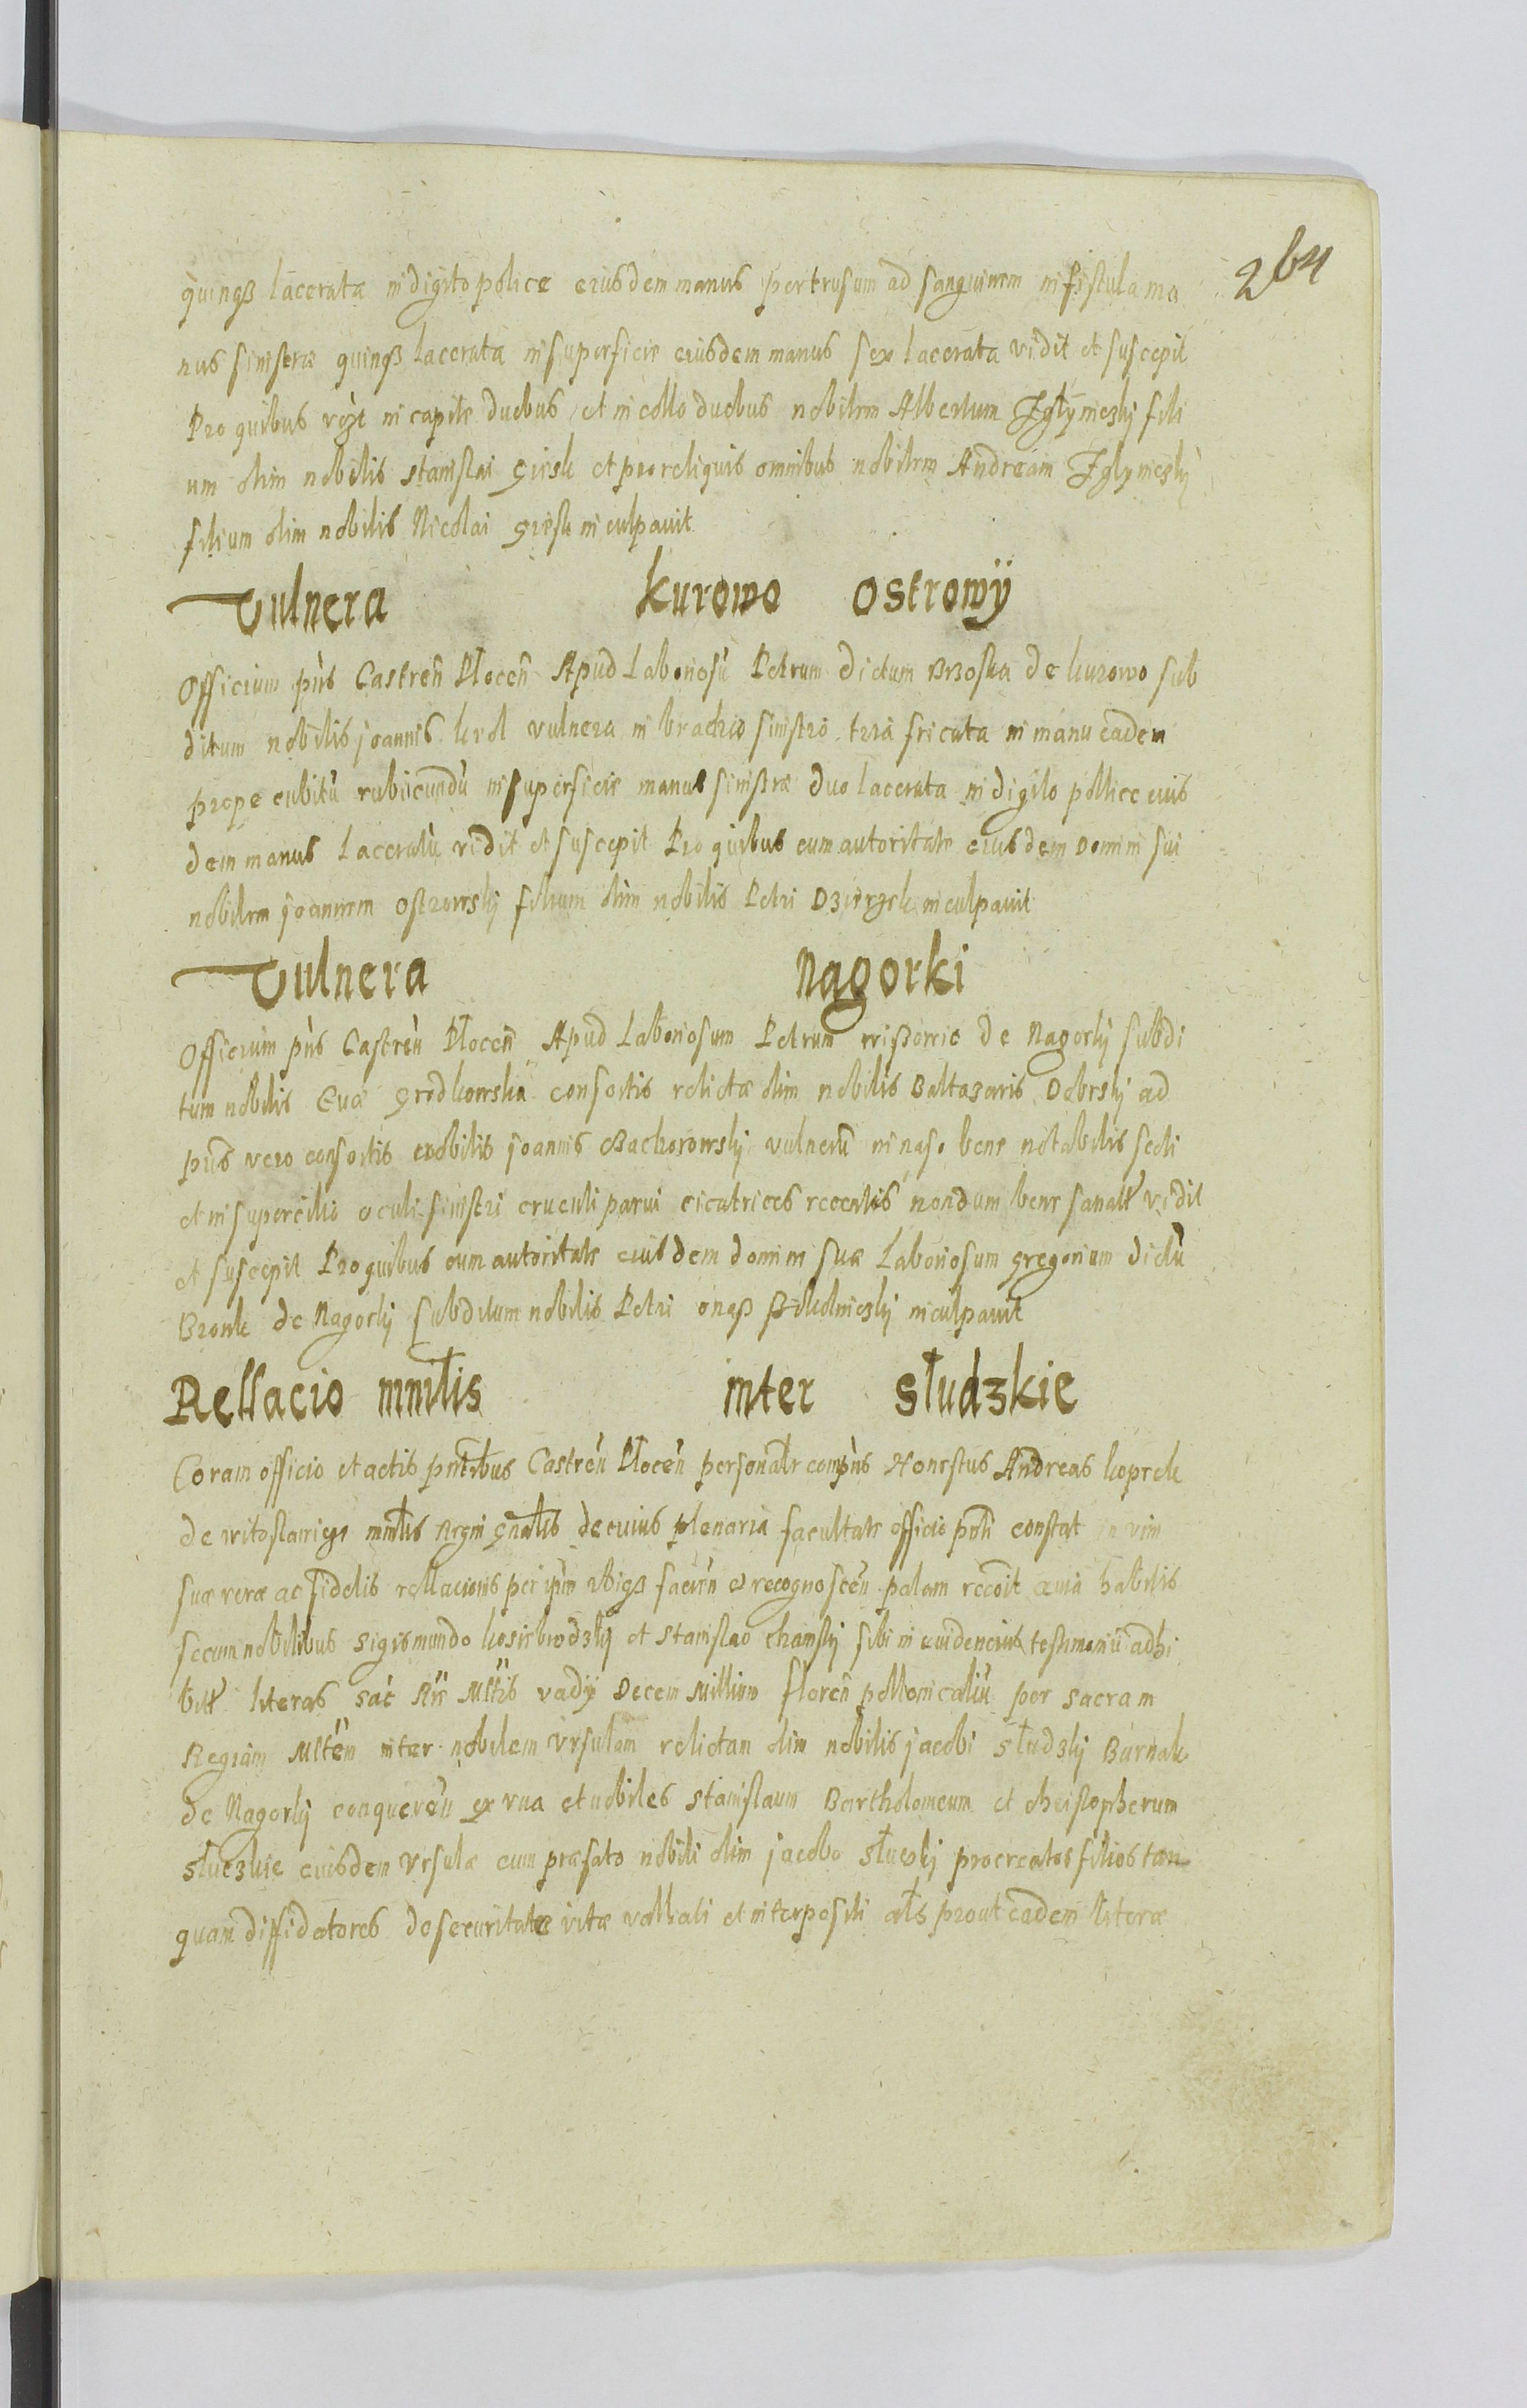 264
quinqß lacerata in digito police eiusdem manus pertrusum ad sanguinem in fistula ma
nus sinistræ quinqß lacerata in superficie eiusdem manus sex lacerata vidit et suscepit
Pro quibus vizt in capite duobus et in collo duobus nobilem Albertum Jgłyniczkÿ fili
um olim nobilis stanislai et pro reliquis omnibus nobilem Andream Jglyniczkÿ
filium olim nobilis Nicolai inculpavit
Vulnera kurowo Ostrowÿ
Officium pñs Castreñ Płoceñ Apud Laboriosũ Petrum dictum Brzoska de kurowo sub
ditum nobilis joannis krol vulnera in brachio sinistro tria fricata in manu eadem
prope cubitũ rubicundũ in superficie manus sinistræ duo lacerata in digito pollice eius
dem manus Laceratũ vidit et suscepit Pro quibus cum autoritate eiusdem Domini sui
nobilem joannem ostrowskÿ filium olim nobilis Petri Dzierzek inculpavit
Vulnera Nagorki
Officium pñs Castreñ Płoceñ Apud Laboriosum Petrum de Nagorkÿ subdi
tum nobilis Euæ grodkowska consortis relictæ olim nobilis Baltazaris Dobrskÿ ad
pñs vero consortis nobilis joannis Bachorowskÿ vulnerũ in naso bene notabilis
et in supercilio oculi sinistri parui cicatrices recentis nondum bene vidit
et suscepit Pro quibus cum autoritate eiusdem dominæ suæ Laboriosum gregorium dictũ
Bronk de Nagorkÿ subditum nobilis Petri inculpavit
Rellacio mñłis inter słudzkie
Coram officio et actis pñtibus Castreñ Płoceñ personałr compñs Honestus Andreas koprek
de mñłis Regni gñałis de cuius plenaria facultate officio pñti constat in vim
suæ veræ ac fidelis rellacionis per ipñm ibiqß facieñ et recognosceñ palam habitis
secum nobilibus sigismundo kosiebrodzkÿ et stanislao chamskÿ sibi in euidencius testimoniũ adhi
bitł literas sac̃ Rÿe Mttis vadÿ Decem Millium floreñ pollonicaliũ per sacram
Regiam Mtteñ inter nobilem Vrsulam relictam olim nobilis jacobi słudzkÿ Burnak
de Nagorkÿ conquereñ ex vna et nobiles stanislaum Bartholomeum et christopherum
słuczkie eiusdem vrsulæ cum præfato nobili olim jacobo słuczkÿ procreatos filios tan
quam diffidatores de securitate vitæ vallati et interpositi ałs prout eadem literæ